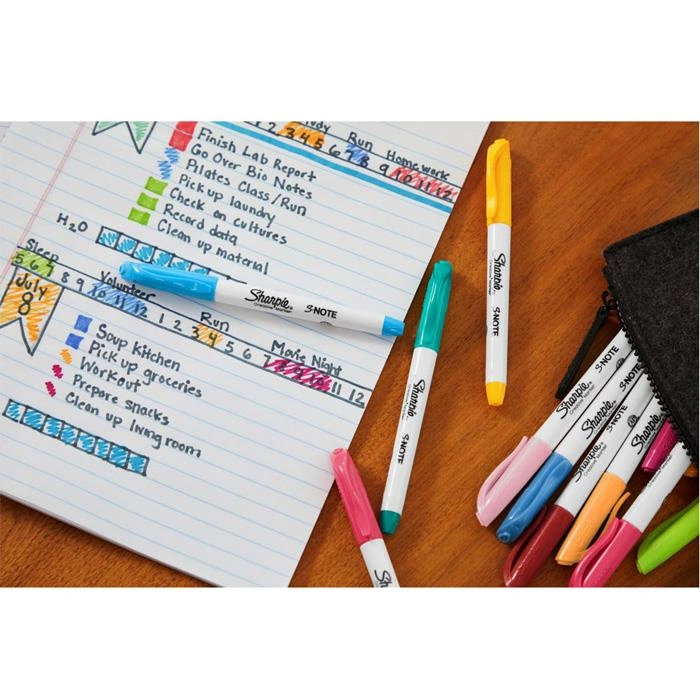 Study Run Homework
2 3 4 5 6 7 8 9 10 11 12
Finish Lab Report
Go Over Bio Notes
Pilates Class/Run
Pick up laundry
Check on cultures
Record data
Clean up material
H2O
Sleep Volunteer Run Movie Night
5 6 7 8 9 10 11 12 1 2 3 4 5 6 7 8 9 10 11 12
July
8
Soup Kitchen
Pick up groceries
Workout
Prepare snacks
Clean up living room
Sharpie S·NOTE
Creative Marker
Sharpie S·NOTE
Creative Marker
Sharpie S·NOTE
Creative Marker
Sharpie
Sharpie S·NOTE
Creative Marker
Sharpie S·NOTE
Creative Marker
Sharpie
Creative Marker